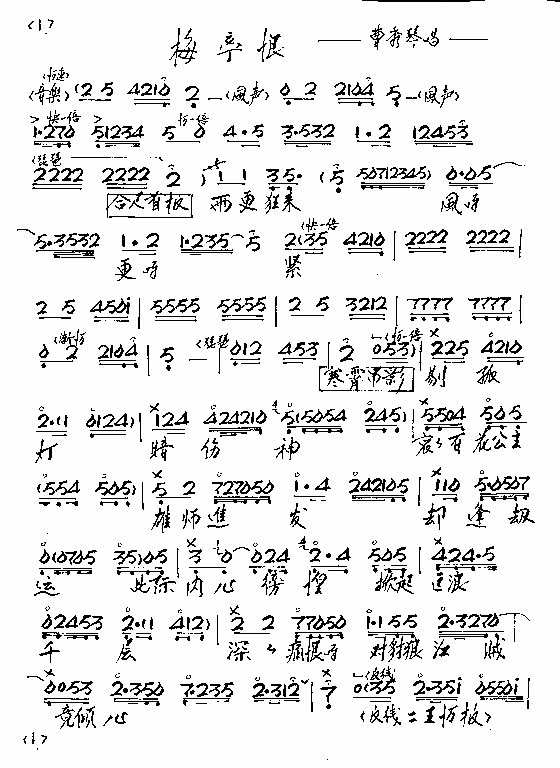 <1>
梅亭恨 —— 曹秀琴唱 ——
(音樂) (2 5 4210 2 —(風声) 0 2 2104 5 —(風声)
> 快一倍 >
1·270 51234 5 0 4·5 3·532 1·2 12453
2222 2222 2 1 1 35· (5 50712345) 0·05
合尺首板 雨更狂来 風呀
(快一倍
5·3532 1·2 1·235 5 2(35 4210 | 2222 2222 |
更呀 紧
2 5 4501 | 5555 5555 | 2 5 3212 | 7777 7777 |
0 2 2104 | 5 — | 012 453 | 2 053) | 225 4210
寒霄吊影 剔孤
2·(1 0124) | 124 424210 | 5(5054 245) | 5504 505
灯 暗伤 神 哀々百花公主
(554 505) | 5 2 727050 1·4 242105 | 110 5·0507
雄师進 发 却逢劫
0(0705 35)05 | 3 0 024 2·4 505 | 424·5
运 此际内心傍惶 掀起 巨浪
02453 2·(1 412) | 2 2 77050 1·155 2·3270
千 层 深々痛恨 江 賊
0053 2·350 7·235 2·312 | 7 0(35 2·351 05501 |
竟倾心 (反线二王板)
<1>